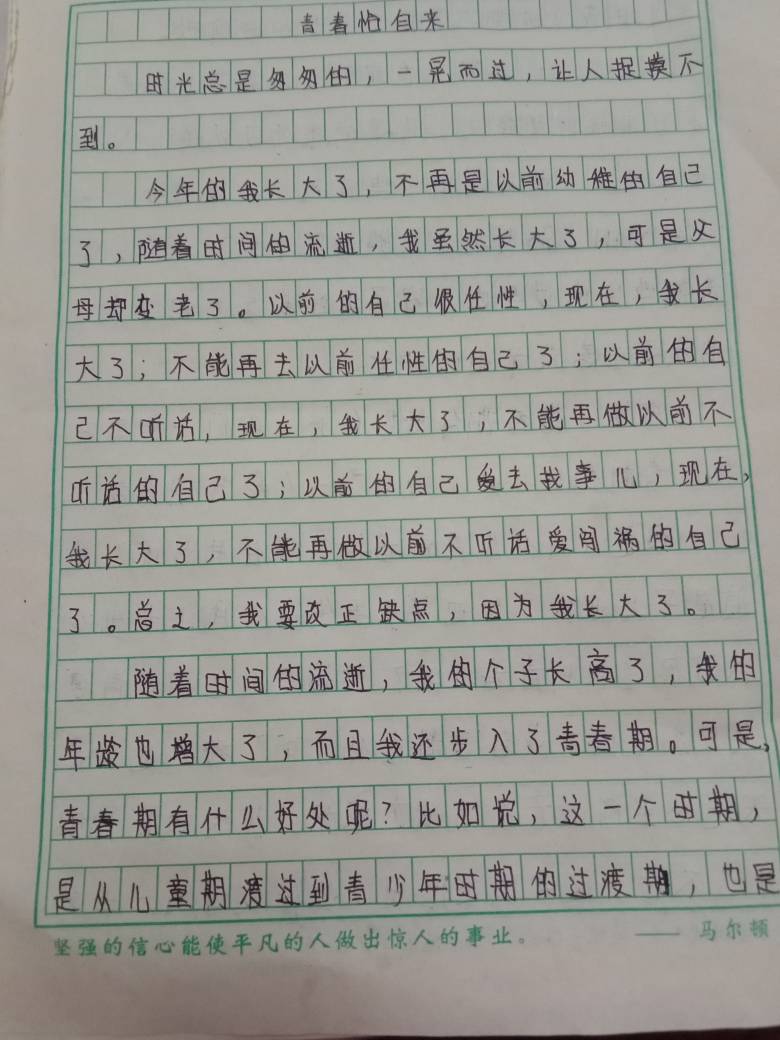 青春恰自来
时光总是匆匆的，一晃而过，让人捉摸不
到。
今年的我长大了，不再是以前幼稚的自己
了，随着时间的流逝，我虽然长大了，可是父
母却变老了。以前的自己很任性，现在，我长
大了；不能再去以前任性的自己了；以前的自
己不听话，现在，我长大了；不能再做以前不
听话的自己了；以前的自己爱去找事儿，现在，
我长大了，不能再做以前不听话爱闯祸的自己
了。总之，我要改正缺点，因为我长大了。
随着时间的流逝，我的个子长高了，我的
年龄也增大了，而且我还步入了青春期。可是，
青春期有什么好处呢？比如说，这一个时期，
是从儿童期渡过到青少年时期的过渡期，也是
坚强的信心能使平凡的人做出惊人的事业。 —— 马尔顿